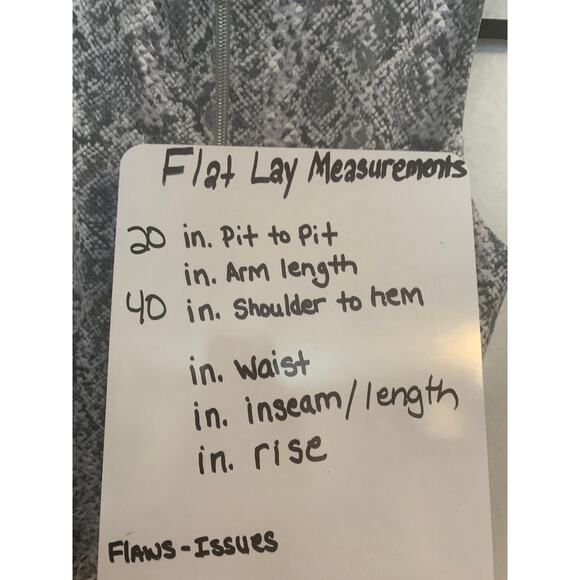 Flat Lay Measurements
20 in. Pit to Pit
in. Arm length
40 in. Shoulder to hem
in. waist
in. inseam/length
in. rise
FLAWS-ISSUES